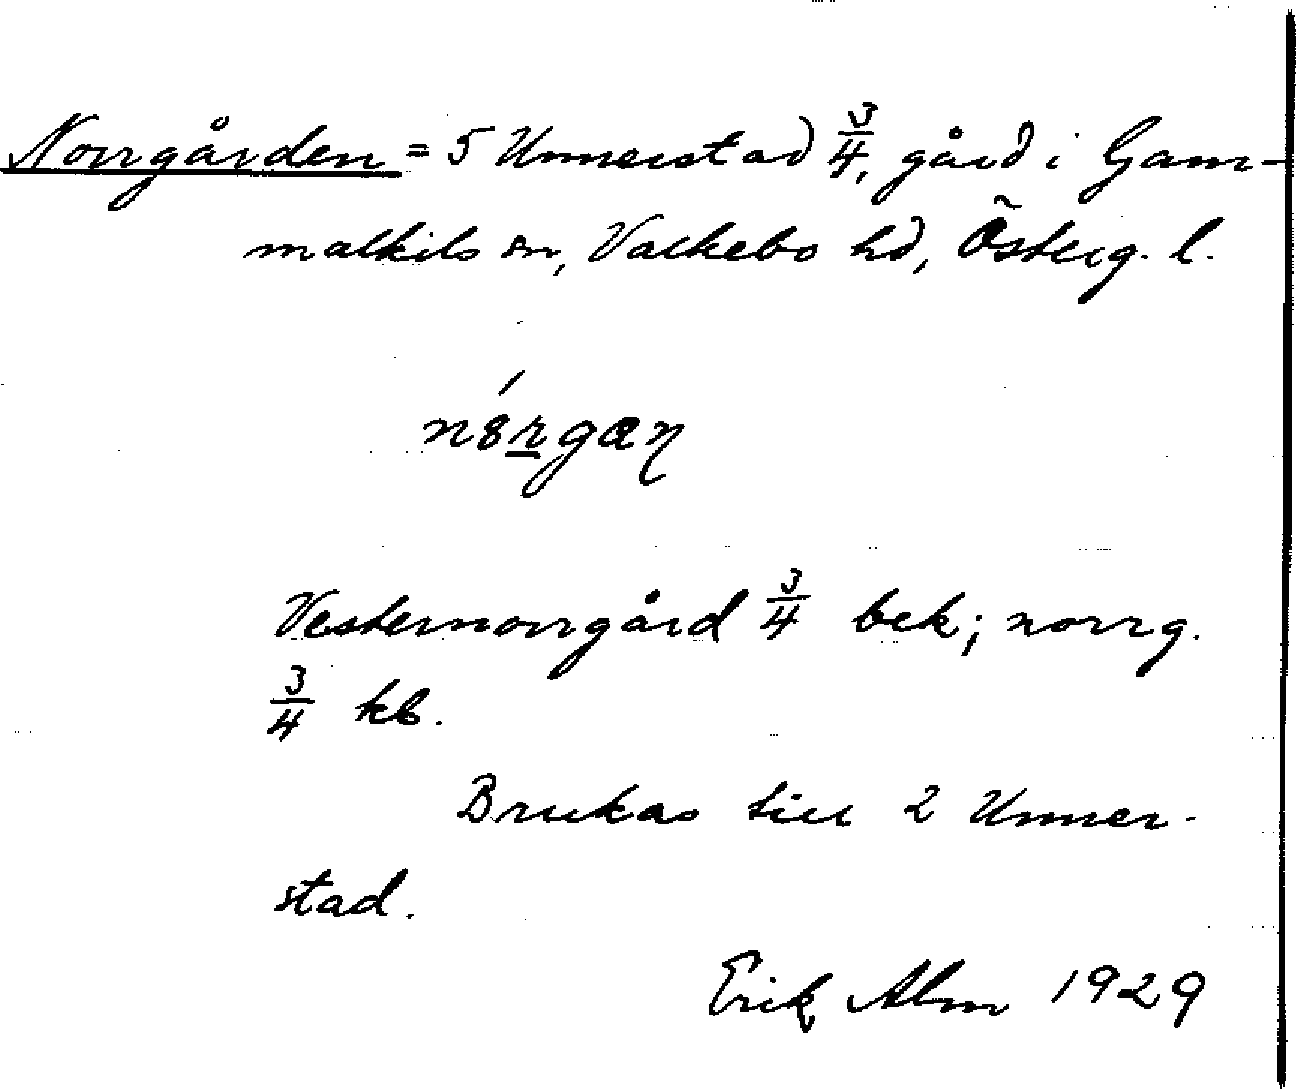 Norrgården = 5 Unnerstad 3/4, gård i Gam-
malkils sn, Valkebo hd, Österg. l.
Vesternorrgård 3/4 bek; norrg.
3/4 kb.
Brukas till 2 Unner-
stad.
Erik Alm 1929